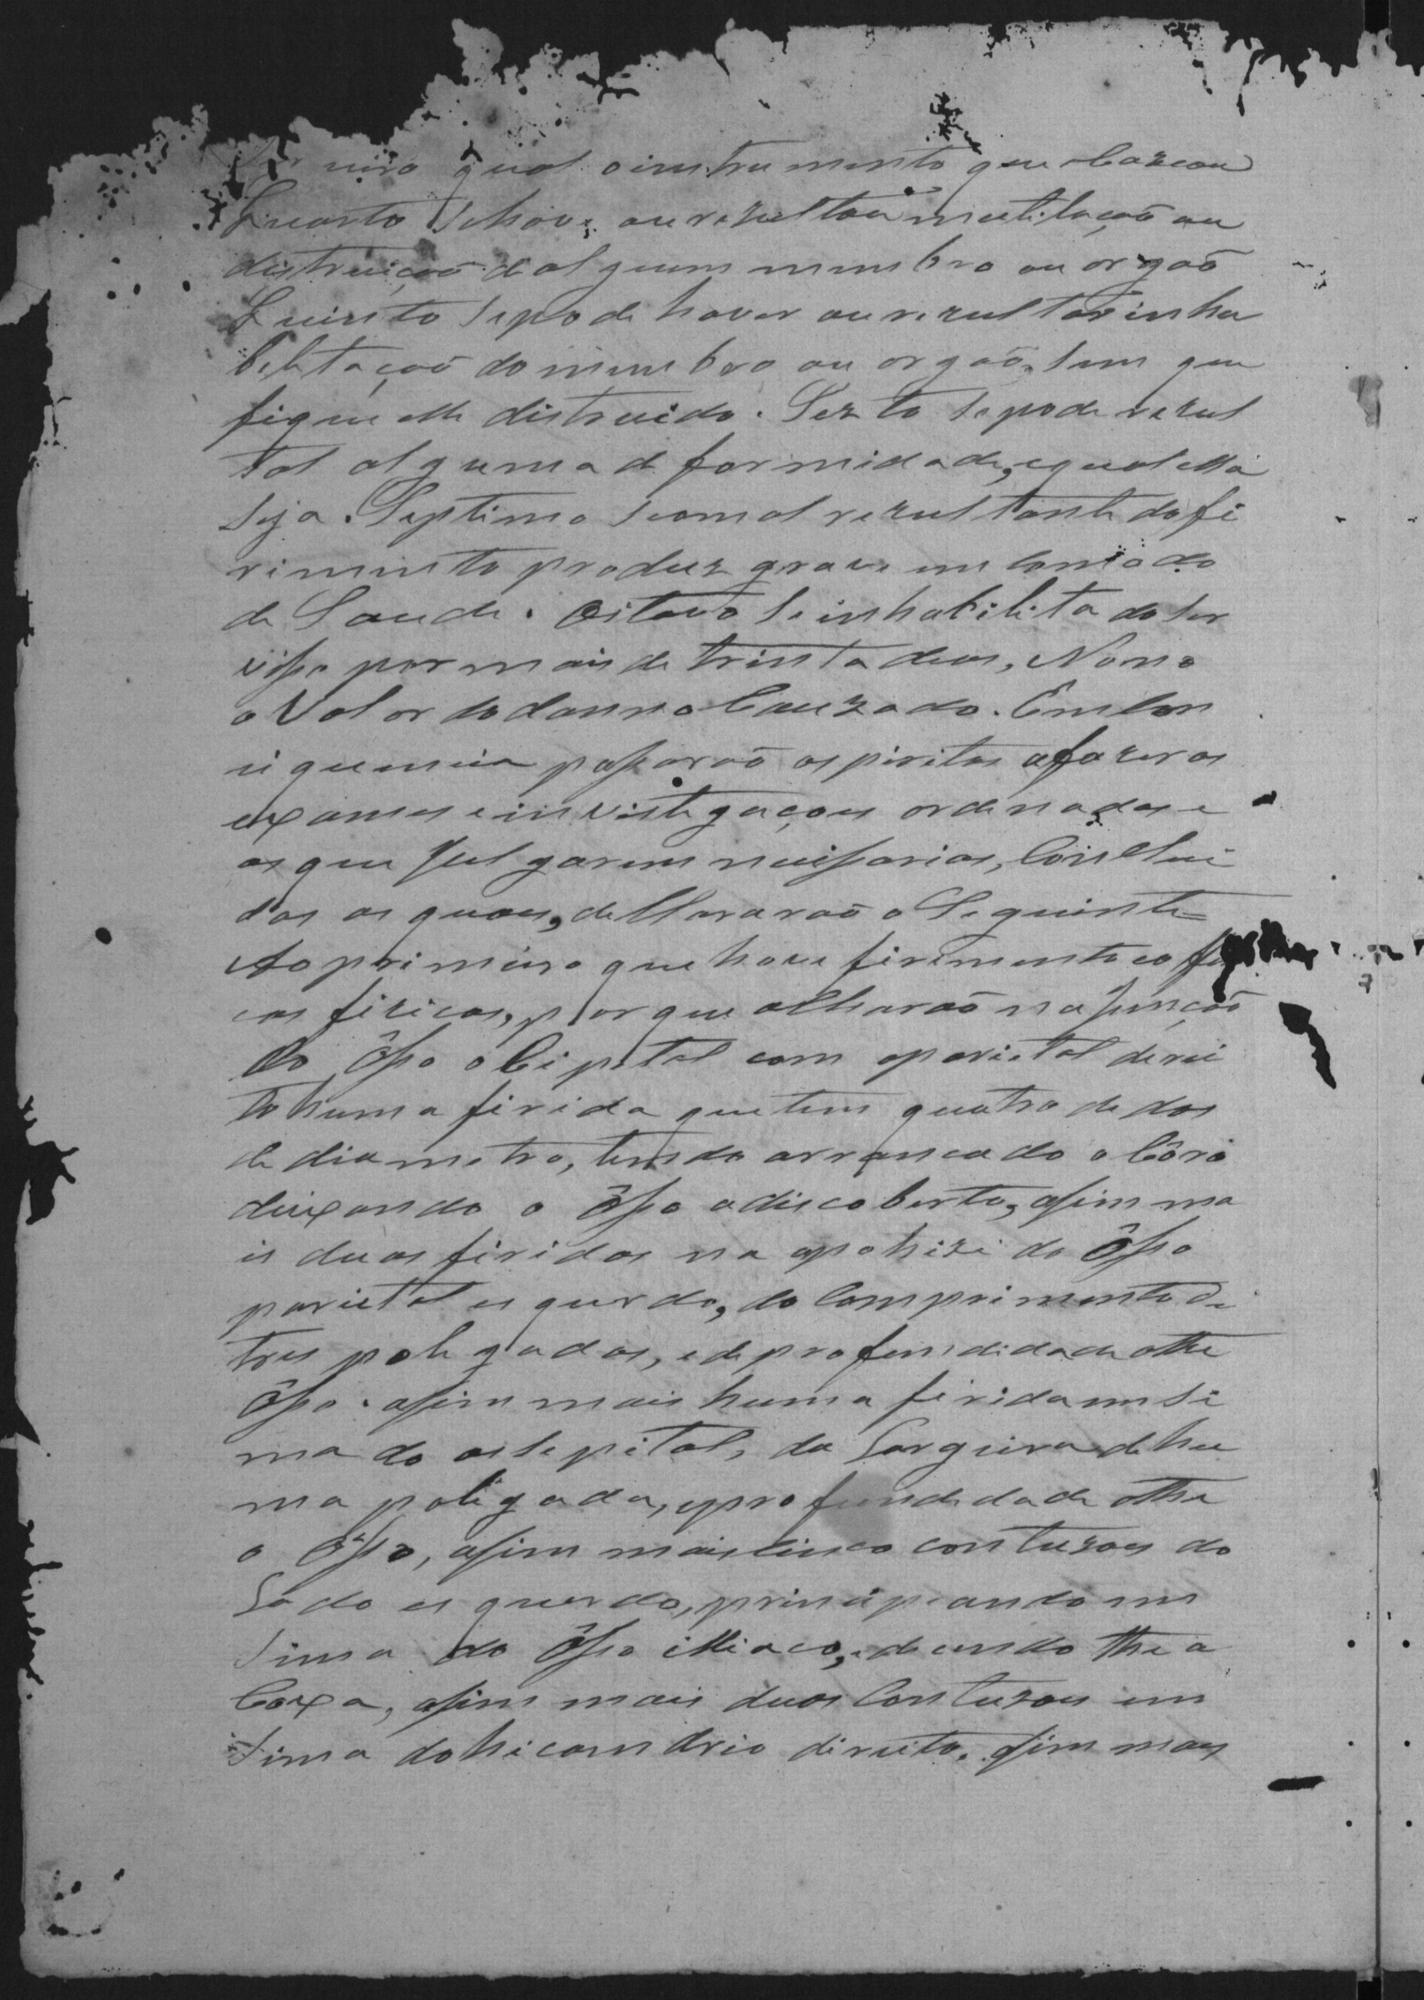 qual o instrumento que o Cazeou
Quarto Se hove, ou rezultou mutilação ou
distruição de algum membro ou orgaõ
Quinto Se pode haver ou rezultar inha
belitação do membro ou orgaõ, Sem que
fique elle distruido. Sexto Se pode rezul
tal alguma deformidade, e qual ella
Seja. Septimo Se o mal rezultante do fi
rimento produz grave incomodo
de Saude. Oitavo Se inhabilita do Ser
viso por mais de trinta dias, Nono
o Valor do danno Cauzado. Em Con
siquencia passaraõ os piritos a fazer os
expames e investigaçoes ordenadas e
as que Julgarem necissarias, Conclui
das as quaes, declararaõ o Seguinte =
Ao primeiro que hove firimento e
cas fizicas, porque acharaõ na Junção
do Osso olcipital com o parietal direi
to huma firida que tem quatro dedos
de diametro, tendo arrancado o Côro
deixando o Osso a discoberto, assim ma
is duas firidas na apohize do Osso
parietal esquerdo, do Comprimento de
tres polegadas, e de profundidade athe
Osso. assim mais huma firida em Si
ma do osepital, da Largueira de hu
ma poligada, e profundidade athe
o Osso, assim mais cinco contuzoes do
Lado esquerdo, principeando em
Sima do Osso illiaco, e decendo the a
Coxa, assim mais duas Contuzoes em
Sima do hicondrio direito. assim mais